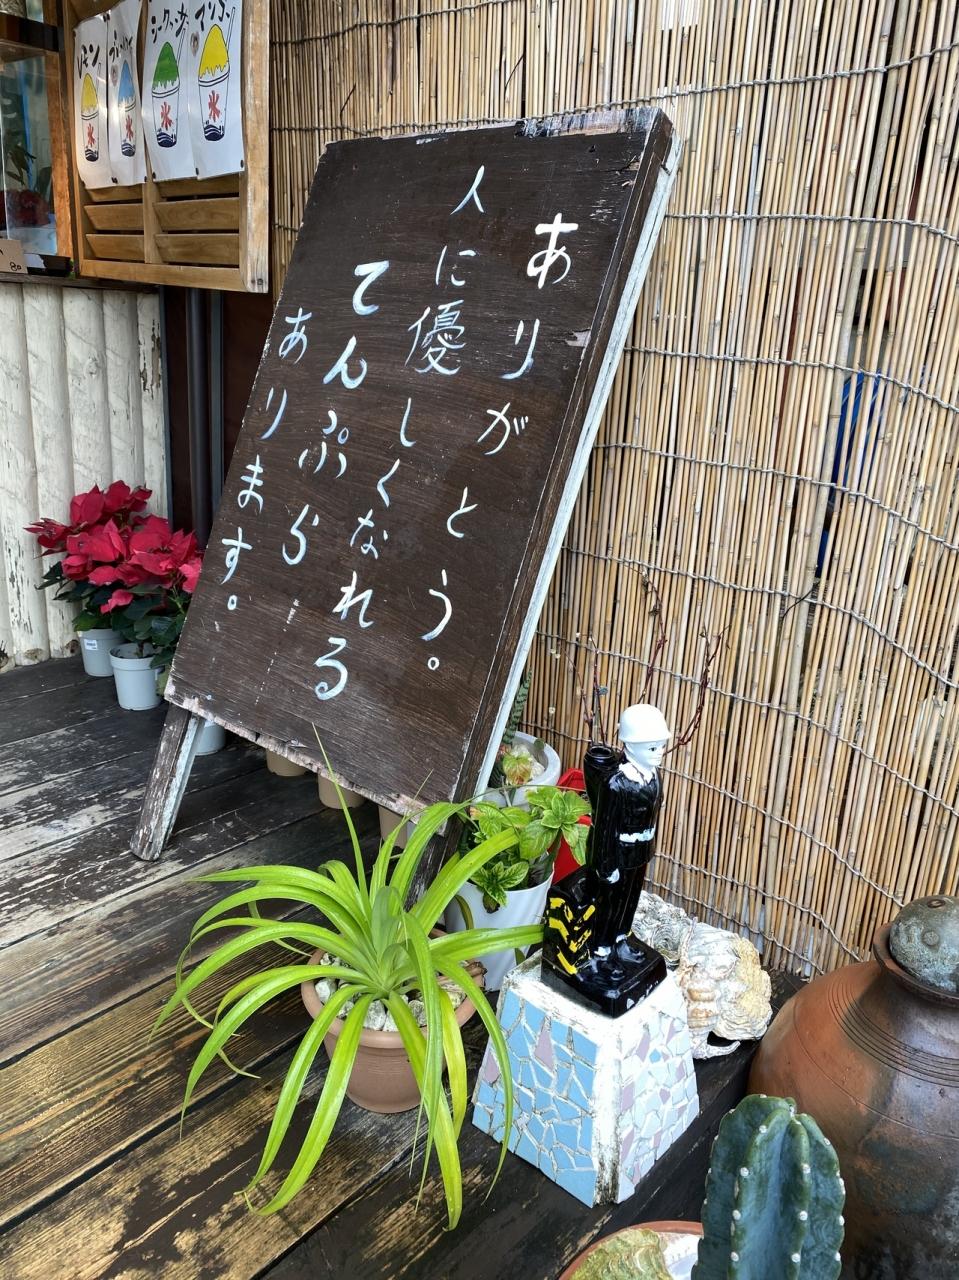 ありがとう。
人に優しくなれる
てんぷら
あります。
レモン
ブルーハワイ
シークヮーサー
マリブ
氷
氷
氷
氷
80